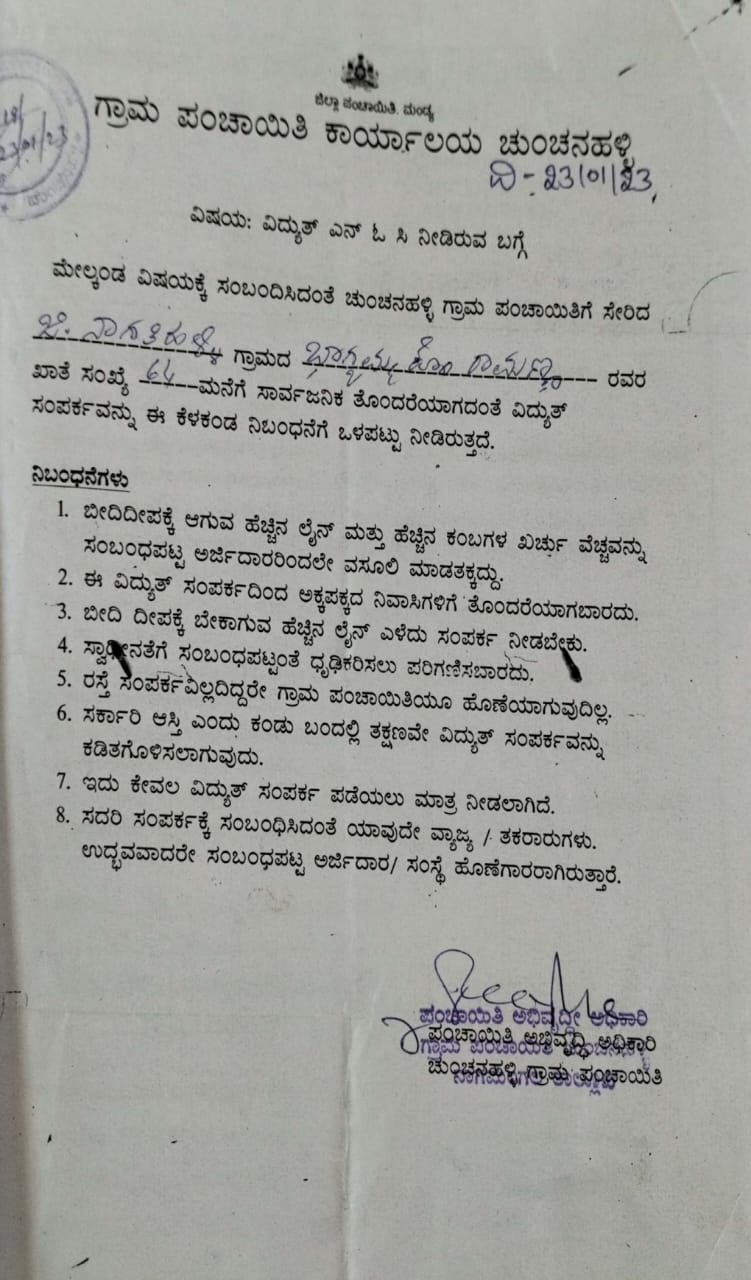 18/
23/01/23
ಜಿಲ್ಲಾ ಪಂಚಾಯಿತಿ, ಮಂಡ್ಯ
ಗ್ರಾಮ ಪಂಚಾಯಿತಿ ಕಾರ್ಯಾಲಯ ಚುಂಚನಹಳ್ಳಿ
ದಿ - 23/01/23,
ವಿಷಯ: ವಿದ್ಯುತ್ ಎನ್ ಓ ಸಿ ನೀಡಿರುವ ಬಗ್ಗೆ
ಮೇಲ್ಕಂಡ ವಿಷಯಕ್ಕೆ ಸಂಬಂದಿಸಿದಂತೆ ಚುಂಚನಹಳ್ಳಿ ಗ್ರಾಮ ಪಂಚಾಯಿತಿಗೆ ಸೇರಿದ
ಜಿ. ನಾಗತಿಹಳ್ಳಿ ಗ್ರಾಮದ ಭಾಗ್ಯಮ್ಮ ಕೋಂ ರಾಮಣ್ಣ ರವರ
ಖಾತೆ ಸಂಖ್ಯೆ 64 ಮನೆಗೆ ಸಾರ್ವಜನಿಕ ತೊಂದರೆಯಾಗದಂತೆ ವಿದ್ಯುತ್
ಸಂಪರ್ಕವನ್ನು ಈ ಕೆಳಕಂಡ ನಿಬಂಧನೆಗೆ ಒಳಪಟ್ಟು ನೀಡಿರುತ್ತದೆ.
ನಿಬಂಧನೆಗಳು
1. ಬೀದಿದೀಪಕ್ಕೆ ಆಗುವ ಹೆಚ್ಚಿನ ಲೈನ್ ಮತ್ತು ಹೆಚ್ಚಿನ ಕಂಬಗಳ ಖರ್ಚು ವೆಚ್ಚವನ್ನು
ಸಂಬಂಧಪಟ್ಟ ಅರ್ಜಿದಾರರಿಂದಲೇ ವಸೂಲಿ ಮಾಡತಕ್ಕದ್ದು.
2. ಈ ವಿದ್ಯುತ್ ಸಂಪರ್ಕದಿಂದ ಅಕ್ಕಪಕ್ಕದ ನಿವಾಸಿಗಳಿಗೆ ತೊಂದರೆಯಾಗಬಾರದು.
3. ಬೀದಿ ದೀಪಕ್ಕೆ ಬೇಕಾಗುವ ಹೆಚ್ಚಿನ ಲೈನ್ ಎಳೆದು ಸಂಪರ್ಕ ನೀಡಬೇಕು.
4. ಸ್ವಾಧೀನತೆಗೆ ಸಂಬಂಧಪಟ್ಟಂತೆ ಧೃಢಿಕರಿಸಲು ಪರಿಗಣಿಸಬಾರದು.
5. ರಸ್ತೆ ಸಂಪರ್ಕವಿಲ್ಲದಿದ್ದರೇ ಗ್ರಾಮ ಪಂಚಾಯಿತಿಯೂ ಹೊಣೆಯಾಗುವುದಿಲ್ಲ.
6. ಸರ್ಕಾರಿ ಆಸ್ತಿ ಎಂದು ಕಂಡು ಬಂದಲ್ಲಿ ತಕ್ಷಣವೇ ವಿದ್ಯುತ್ ಸಂಪರ್ಕವನ್ನು
ಕಡಿತಗೊಳಿಸಲಾಗುವುದು.
7. ಇದು ಕೇವಲ ವಿದ್ಯುತ್ ಸಂಪರ್ಕ ಪಡೆಯಲು ಮಾತ್ರ ನೀಡಲಾಗಿದೆ.
8. ಸದರಿ ಸಂಪರ್ಕಕ್ಕೆ ಸಂಬಂಧಿಸಿದಂತೆ ಯಾವುದೇ ವ್ಯಾಜ್ಯ / ತಕರಾರುಗಳು.
ಉದ್ಭವವಾದರೇ ಸಂಬಂಧಪಟ್ಟ ಅರ್ಜಿದಾರ/ ಸಂಸ್ಥೆ ಹೊಣೆಗಾರರಾಗಿರುತ್ತಾರೆ.
ಪಂಚಾಯಿತಿ ಅಭಿವೃದ್ದೀ ಅಧಿಕಾರಿ
ಪಂಚಾಯಿತಿ ಅಭಿವೃದ್ಧಿ ಅಧಿಕಾರಿ
ಗ್ರಾಮ ಪಂಚಾಯಿತಿ
ಚುಂಚನಹಳ್ಳಿ ಗ್ರಾಮ ಪಂಚಾಯಿತಿ